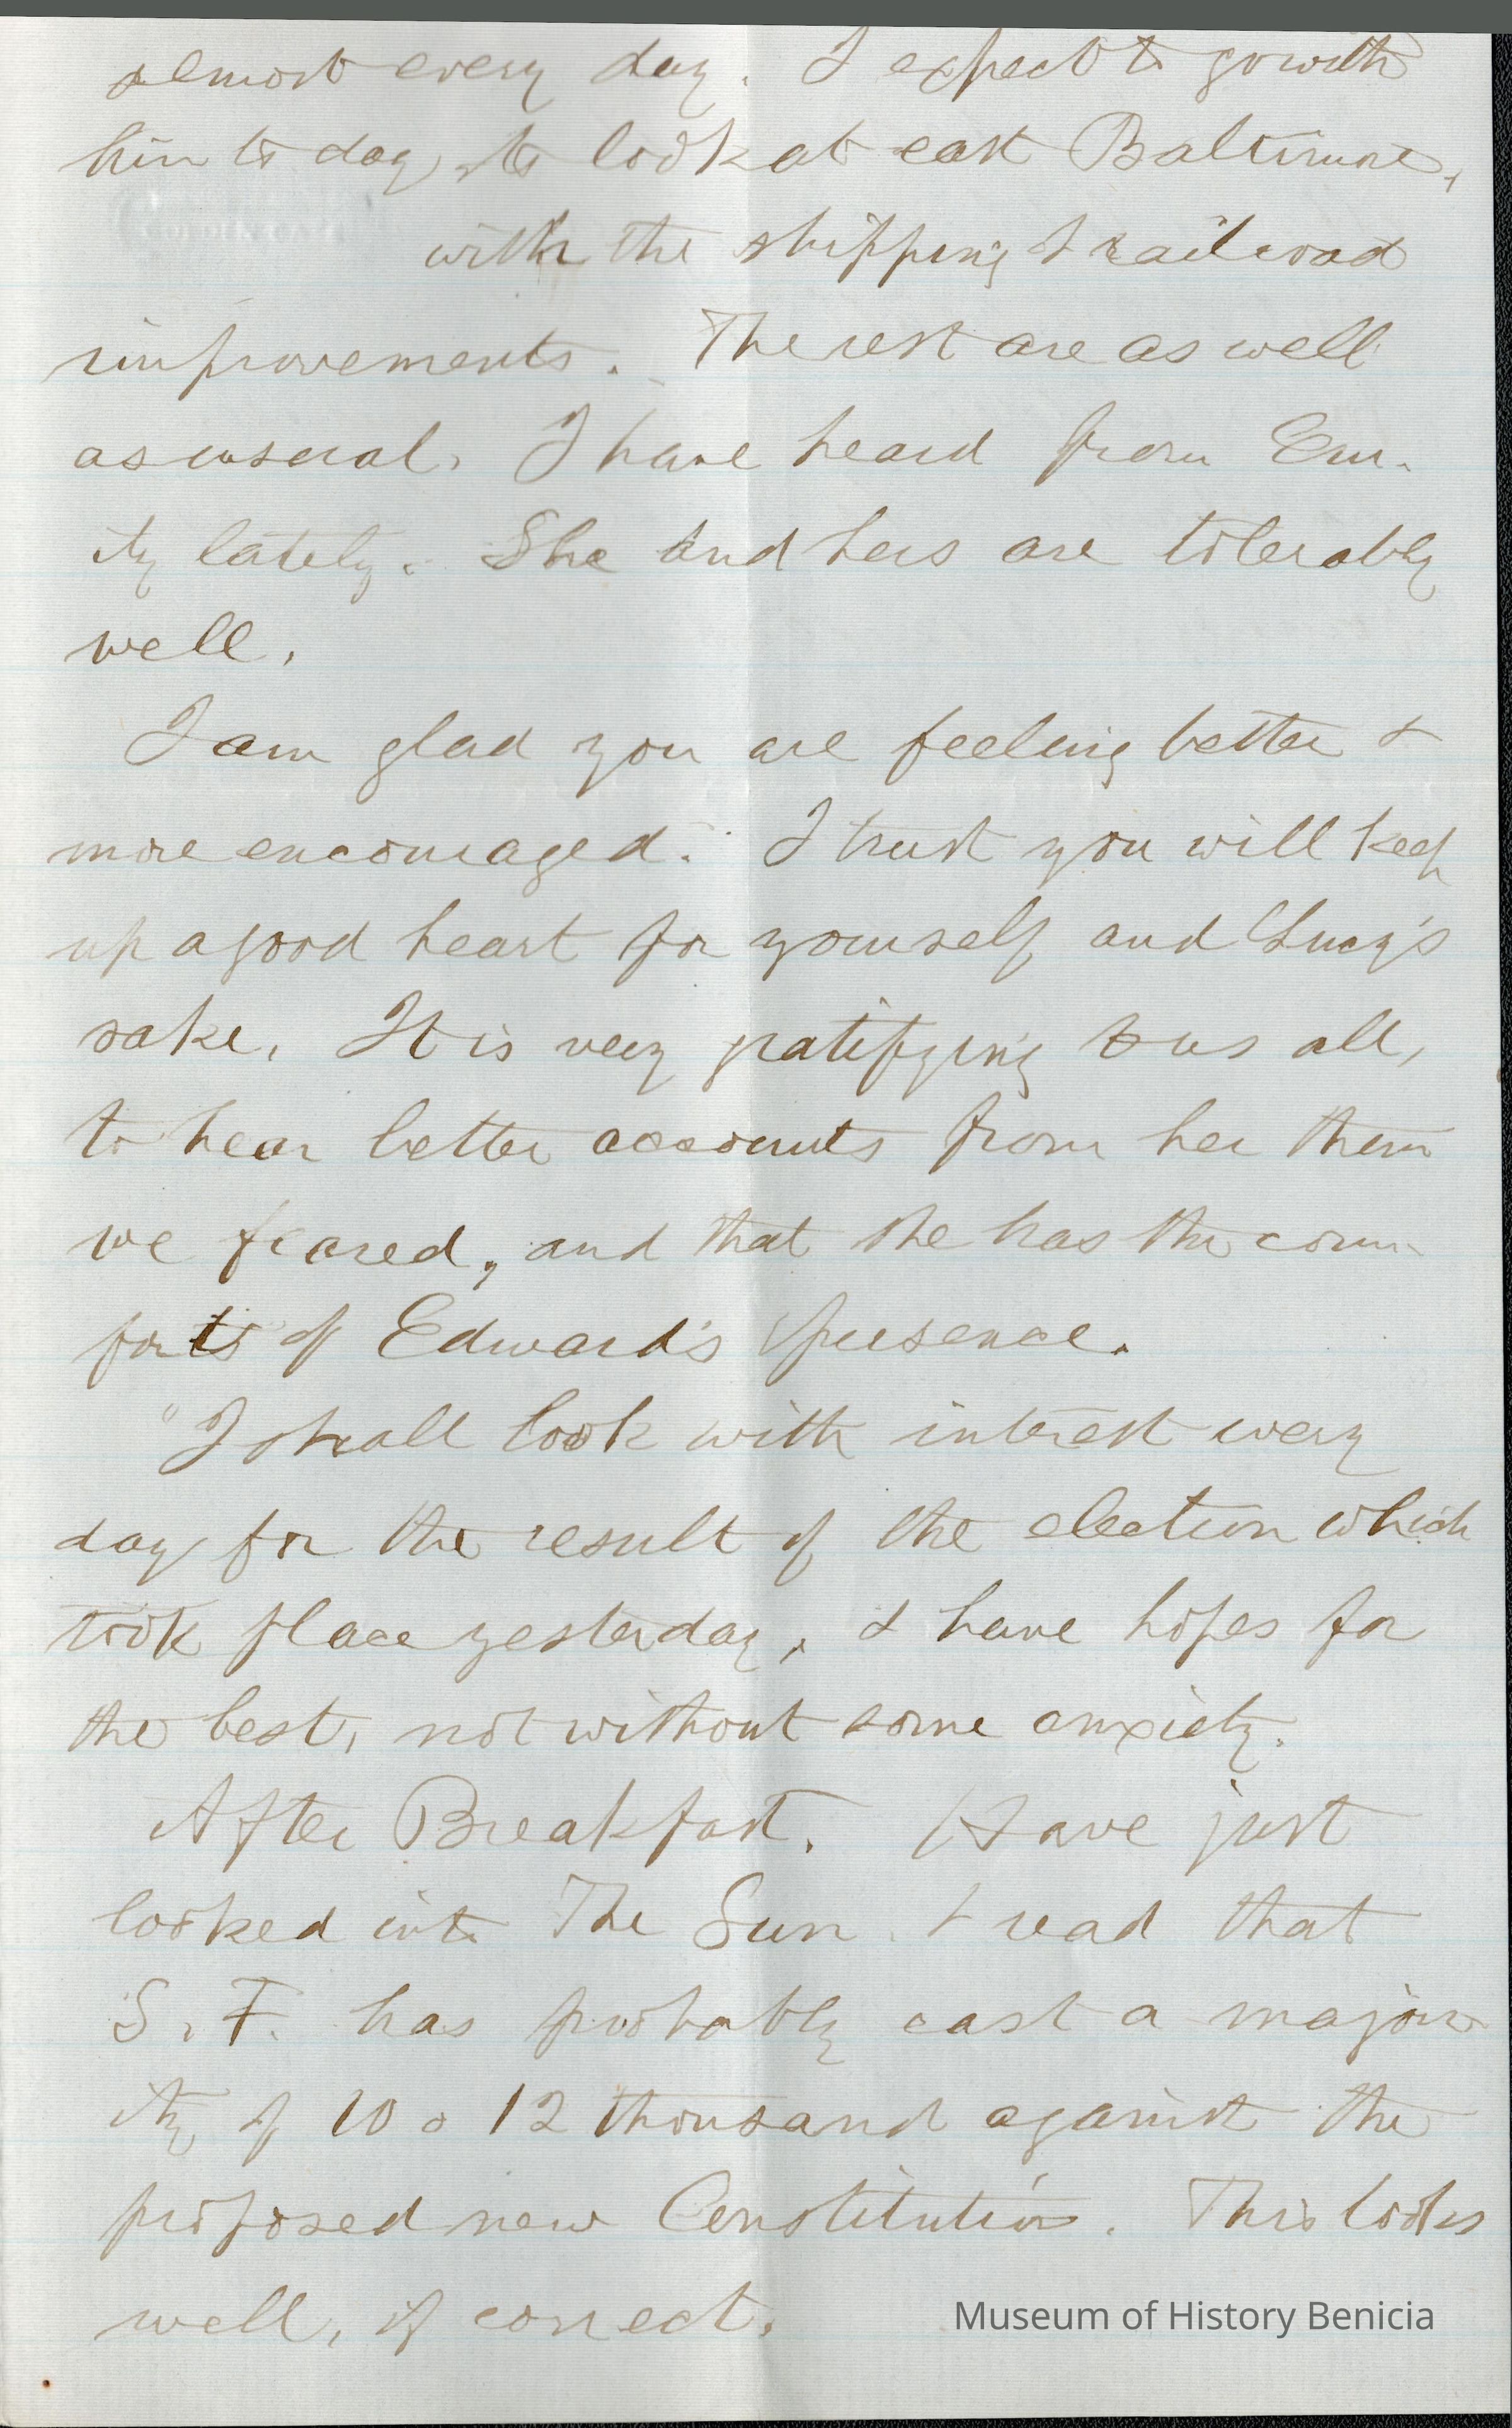 almost every day. I expect to go with
him to day, to look at east Baltimore,
with the shipping & railroad
improvements. The rest are as well
as useral. I have heard from Em-
ily lately. She and hers are tolerably
well.
I am glad you are feeling better &
more encouraged. I trust you will keep
up a good heart for yourself and Lucy's
sake. It is very gratifying to us all,
to hear better accounts from her then
we feared, and that she has the com-
forts of Edward's presence.
"I shall look with interest every
day for the result of the election which
took place yesterday, & have hopes for
the best, not without some anxiety.
After Breakfast. Have just
looked into The Sun & read that
S. F. has probably cast a major-
ity of 10 o 12 thousand against the
proposed new Constitution. This looks
well, if correct.
Museum of History Benicia